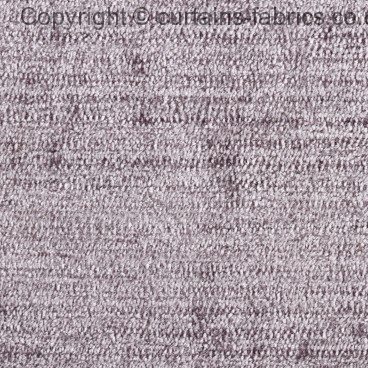 Copyright © curtains-fabrics.co.